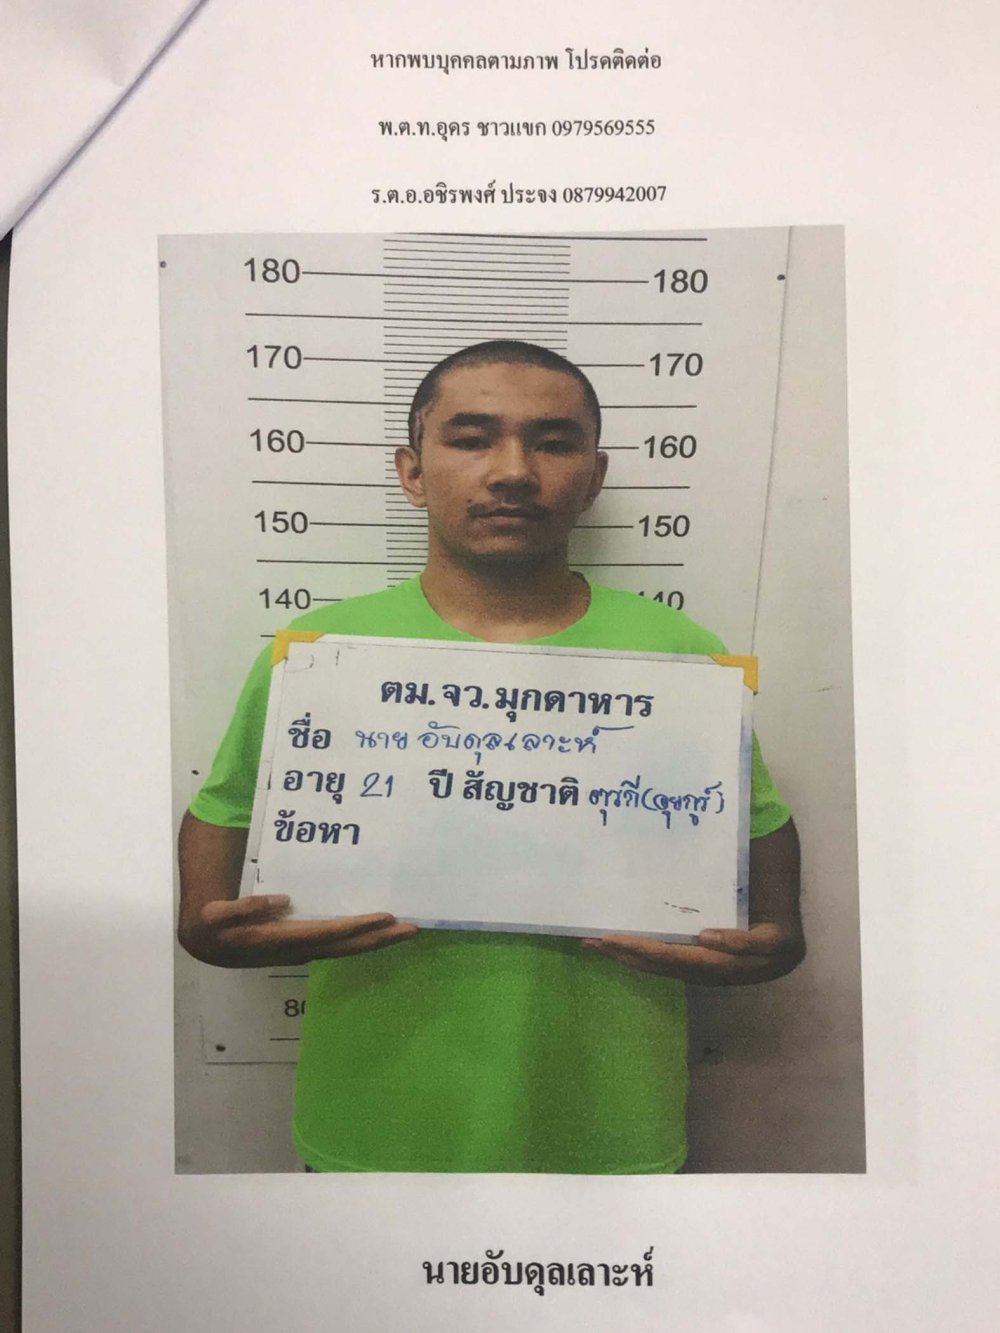 หากพบบุคคลตามภาพ โปรดติดต่อ
พ.ต.ท.อุดร ชาวแขก 0979569555
ร.ต.อ.อชิรพงศ์ ประจง 0879942007
180 180
170 170
160 160
150 150
140 40
ตม.จว.มุกดาหาร
ชื่อ นาย อับดุลเลาะห์
อายุ 21 ปี สัญชาติ ตุรกี(อุยกูร์)
ข้อหา
80
นายอับดุลเลาะห์